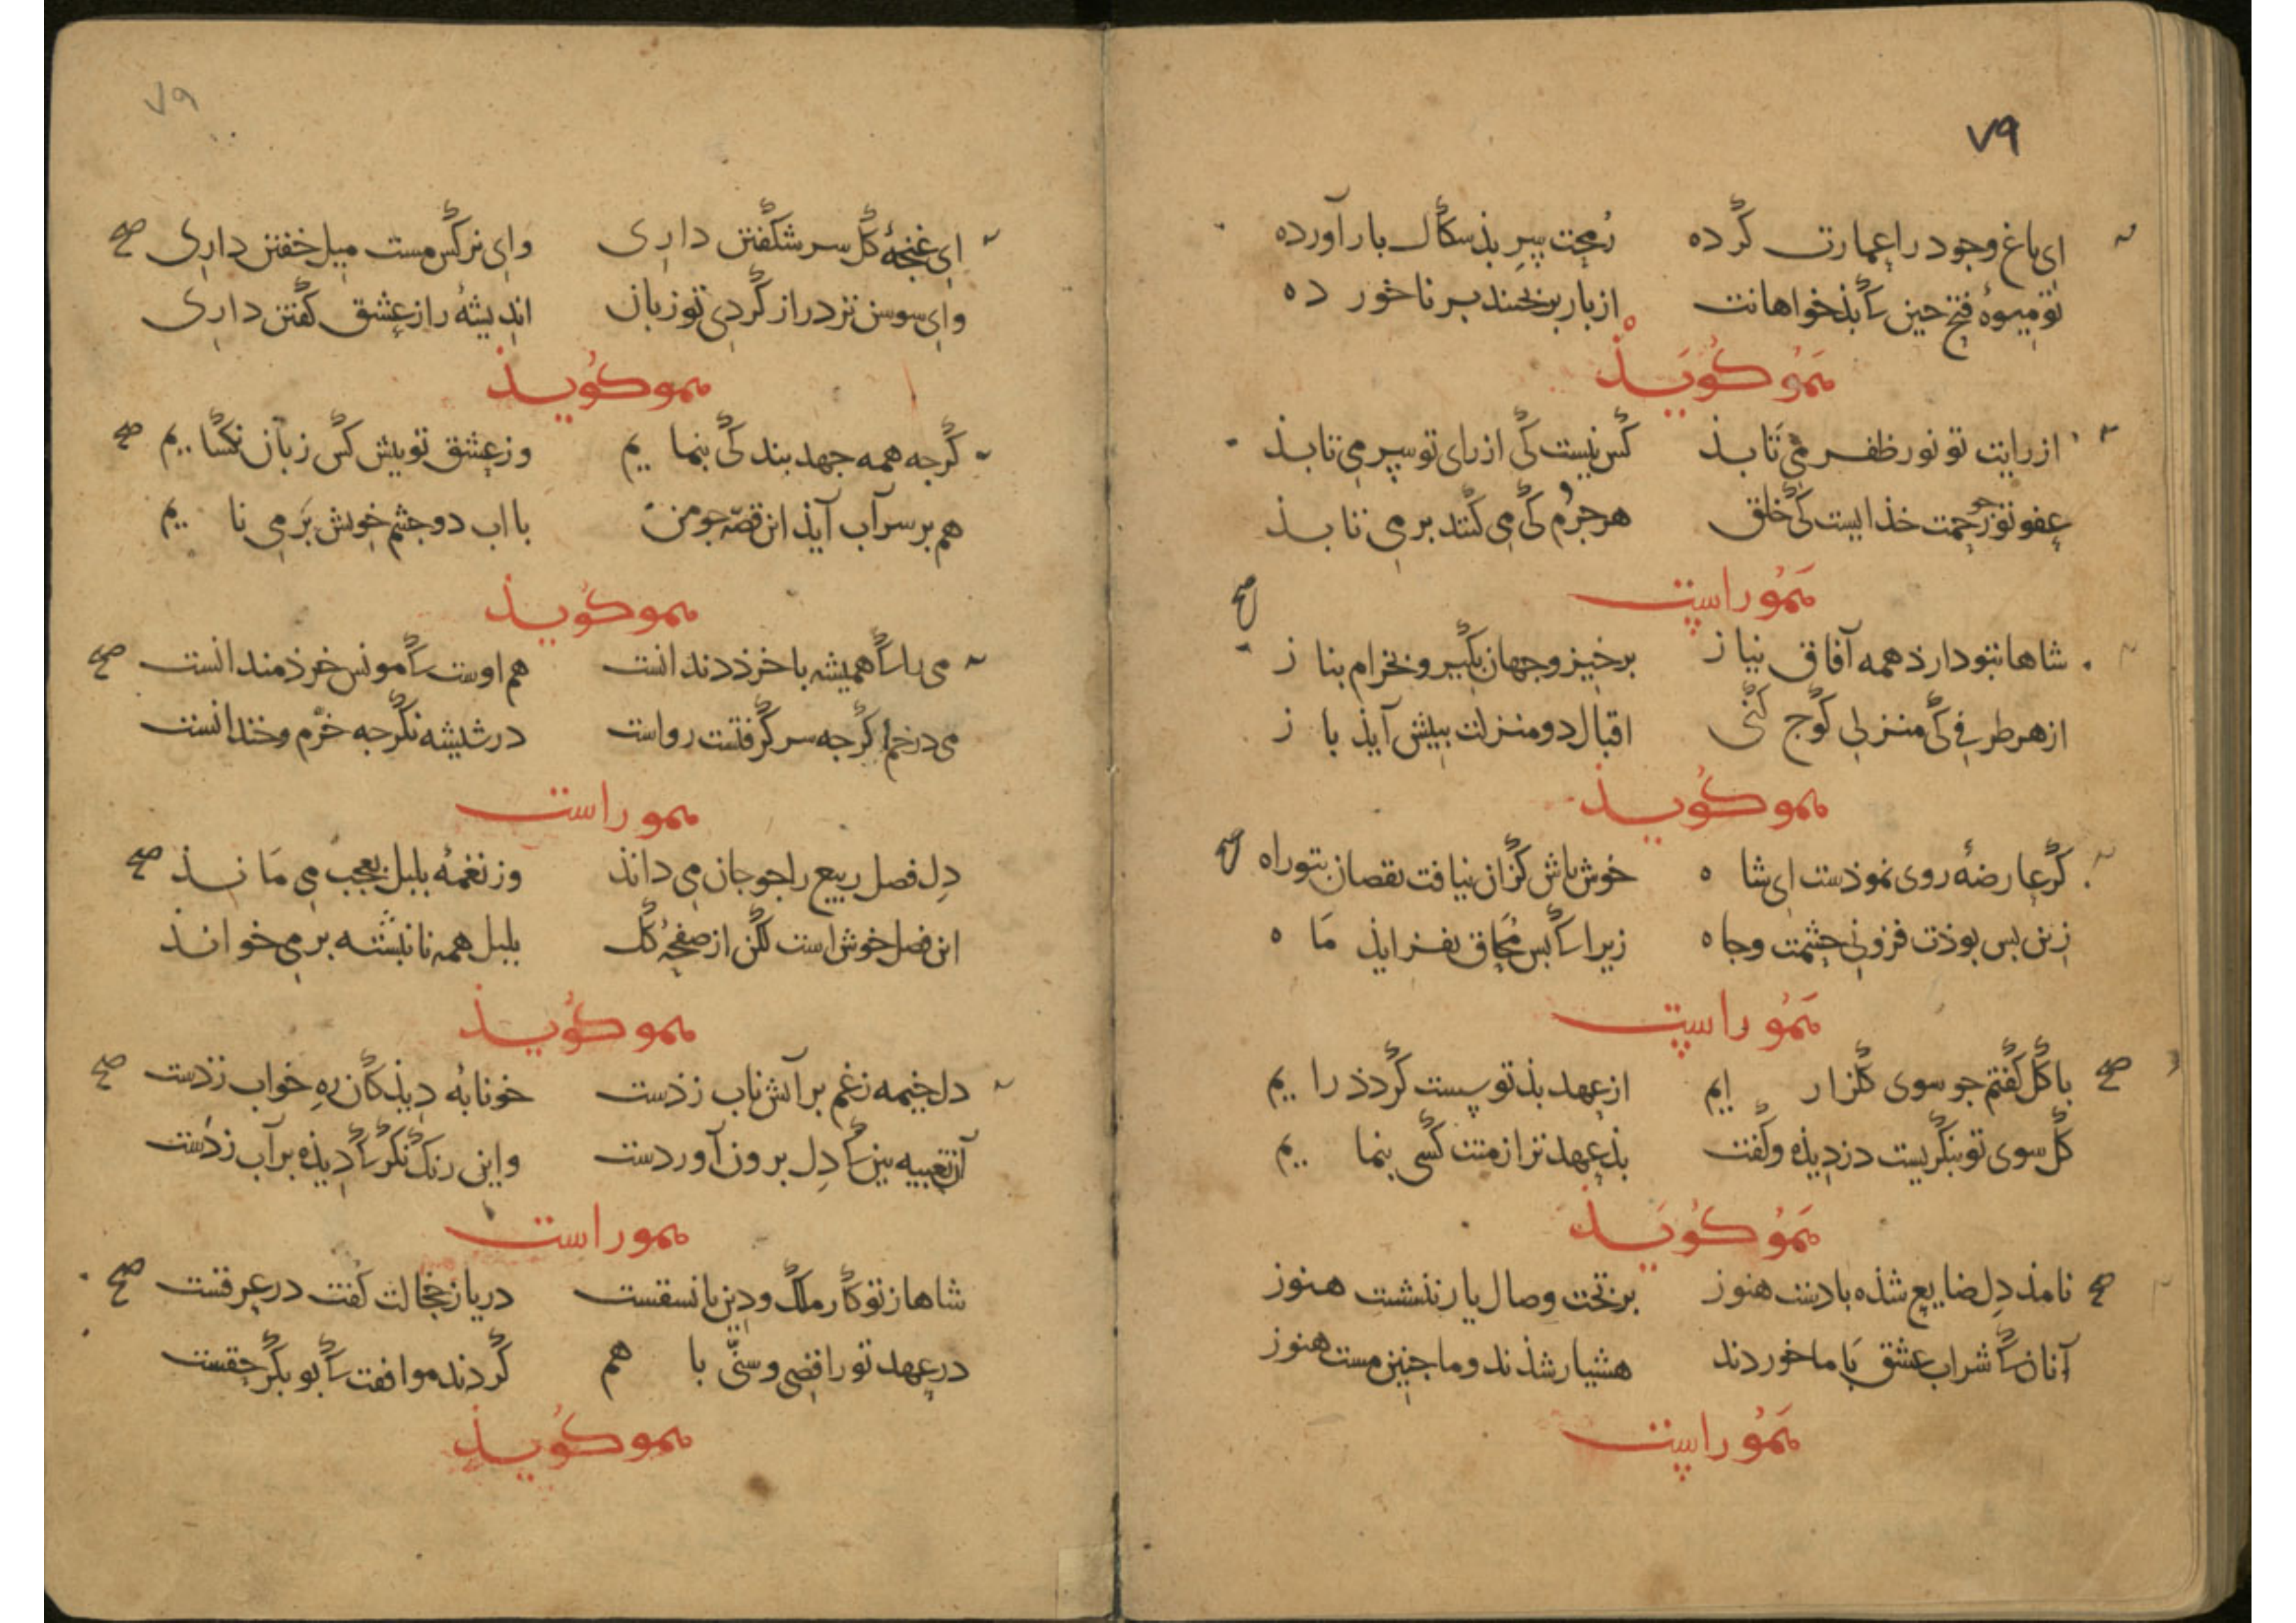 ۷۹
ای باغ وجود را عمارت کرده رُمحت سرِ بذسکال بار آورده
تو میوهٔ فتح جین که بذخواهانت از بار برنجند بر ناخورده
هموُ کوُیَذ
از رایت تو نور ظفر می تابذ کس نیست کی از رای تو سر می تابذ
عفو تو جو رحمت خذایست کی خلق هر جُرم کی می کنند بر می تابذ
هَموُ راست
شاها بتو دارذ همه آفاق نیاز برخیز و جهان بکیر و بخرام بناز
از هر طرفی کی منزلی کوج کنی اقبال دو منزلت ببیش آیذ باز
همو کوُیذ
کر عارضهٔ روی نموذست ای شاه خوش باش کزان نیافت نقصان بتو راه
زین بس بوذت فزونی حشمت و جاه زیرا که بس مُحاق بفزایذ مَاه
هَموُ راست
با کل کفتم جو سوی کلزار ایم از عهد بذ تو پست کردذ رایم
کل سوی تو بنکریست دزدیذه و کفت بذ عهدتر از منت کسی بنمایم
هَموُ کوُیَذ
نامذ دِل ضایع شذه با دست هنوز بر تخت وصال یار ننشست هنوز
آنان که شراب عشق بَا ما خوردند هشیار شذند و ما جنین مست هنوز
هَموُ راست
۷۹
ای غنجهٔ کل سر شکفتن داری وای نرکس مست میل خفتن داری
وای سوسن تر دراز کردی تو زبان اندیشهٔ راز عشق کفتن داری
همو کوُیذ
کرجه همه جهد بندکی بنمایم وز عشق تو بیش کس زبان نکشایم
هم بر سر آب آیذ این قصّه جو من با اب دو جشم خویش بَر می نایم
همو کوُیذ
می را که همیشه با خرذ دندانست هم اوست که مونس خرذمندانست
می در خم اکرجه سر کرفتست رواست در شیشه نکر جه خرّم و خندانست
همو راست
دِل فصل ربیع را جو جان می دانذ وز نغمهٔ بلبل بعجب می مَانذ
این فصل خوش است لکن از صفحهٔ کل بلبل همه نا نبشته بر می خوانذ
همو کوُیذ
دل خیمه زغم بر آتش ناب زذست خونابُه دیذکان رهِ خواب زذست
آن تعبیه بین که دِل برون آوردست واین رنک نکر که دیذه بر آب زذست
همو راست
شاها ز تو کار ملک و دین با نسقست دریا ز خجالت کفت در عرقست
در عهد تو رافضی و سنّی با هم کردند موافقت که بوبکر حقست
همو کوُیذ